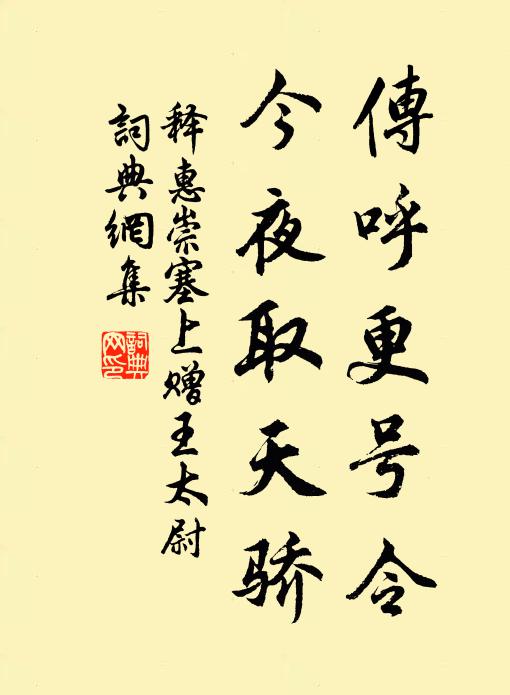 傳呼更号令
今夜取天骄
释惠崇塞上赠王太尉
詞典網集
詞典網印